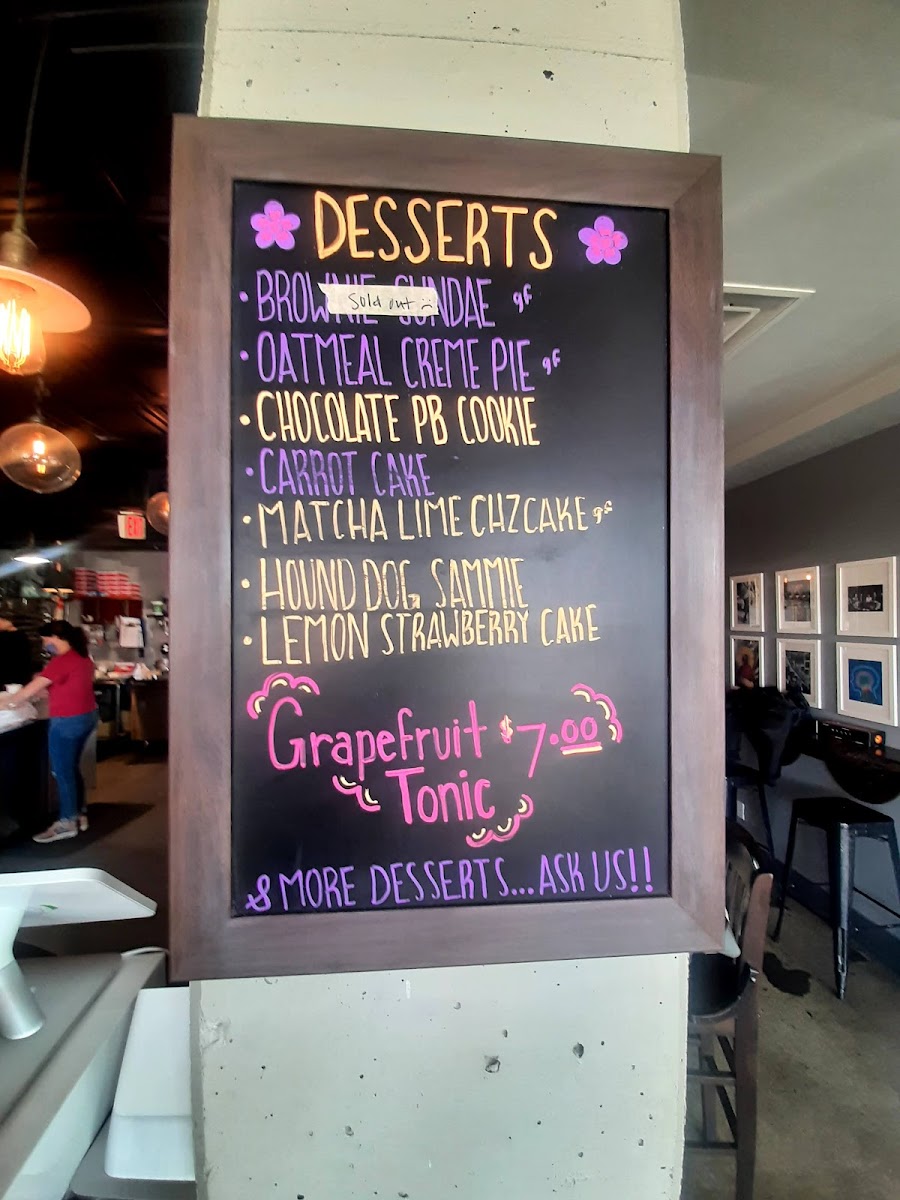 DESSERTS
• BROWNIE SUNDAE gf
Sold out :(
• OATMEAL CREME PIE gf
• CHOCOLATE PB COOKIE
• CARROT CAKE
• MATCHA LIME CHZCAKE gf
• HOUND DOG SAMMIE
• LEMON STRAWBERRY CAKE
Grapefruit $7.00
Tonic
& MORE DESSERTS... ASK US!!
EXIT